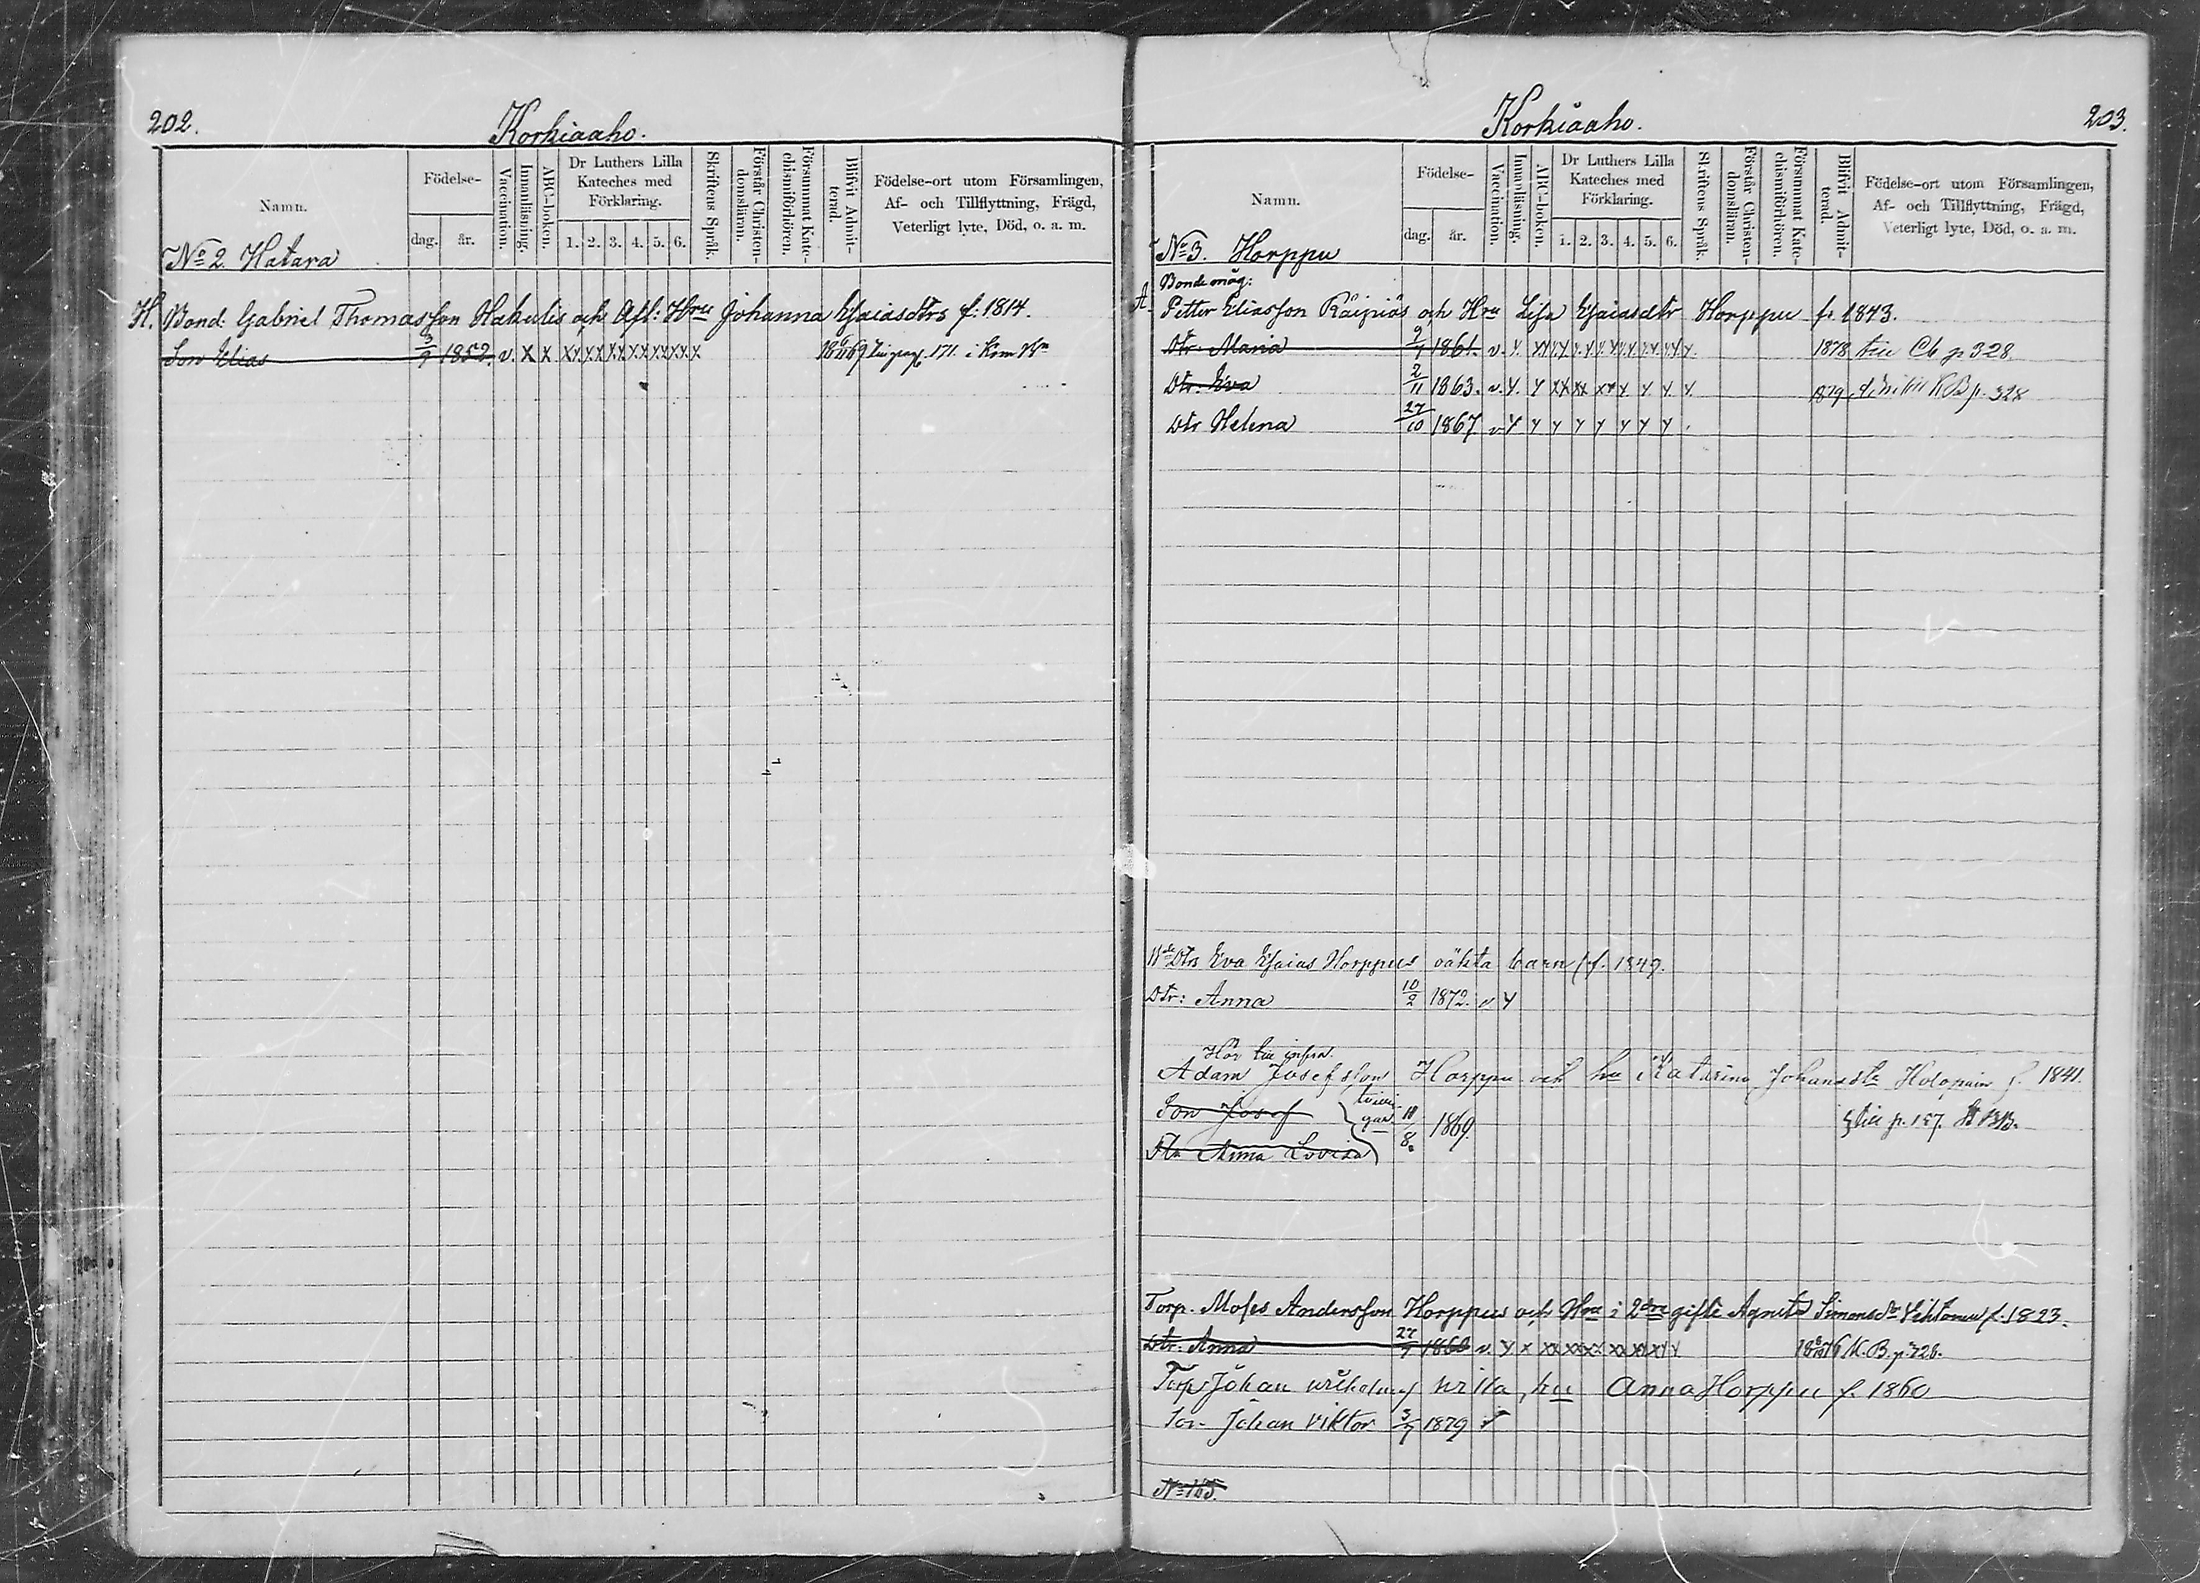 202.
Korkiaaho.
Namn.
Födelse-
dag.
år.
Vaccination.
Innanläsning.
ABC-boken.
Dr Luthers Lilla
Kateches med
Förklaring.
1. 2. 3. 4. 5. 6.
Skriftens Språk.
Förstår Christen-
domsläran.
Försummat Kate-
chismiförhören.
Blifvit Admit-
terad.
Födelse-ort utom Församlingen,
Af- och Tillflyttning, Frägd,
Veterligt lyte, Död, o. a. m.
No 2. Hatara
H. Bond. Gabriel Thomasson Hakulis och Afl: Hru Johanna Esaiasdtrs f: 1814.
Son Elias 3/9 1852. v. x x xx xx xx xx xx xx x 171. i
203.
Korkiaaho.
Namn.
Födelse-
dag.
år.
Vaccination.
Innanläsning.
ABC-boken.
Dr Luthers Lilla
Kateches med
Förklaring.
1. 2. 3. 4. 5. 6.
Skriftens Språk.
Förstår Christen-
domsläran.
Försummat Kate-
chismiförhören.
Blifvit Admit-
terad.
Födelse-ort utom Församlingen,
Af- och Tillflyttning, Frägd,
Veterligt lyte, Död, o. a. m.
No 3. Horppu
Bondemåg:
A. Petter Eliasson Räipiäs och Hru Lisa Esaiasdtr Horppu f. 1843.
Dtr. Maria 9/7 1861. v. 1878 p 328
Dtr. Eva 2/11 1863. v. 1879 p. 328
Dtr Helena 27/10 1867 v
Dtrs Eva Esaias Horppus oäkta barn f. 1849.
Dtr: Anna 10/2 1872. v
Hör till infra.
Adam Josefsson Horppu och hu Katarina Johansdtr Holopain f. 1841.
Son Josef
Dtr Anna Lovisa
18/8. 1869.
till p. 157.
Torp. Moses Andersson Horppus och Hru i 2dra gifte Agneta Simonsdtr f. 1823.
Dtr: Anna 27/7 1860 v. K.B. p. 328.
Torp Johan hu Anna Horppu f. 1860
Son Johan Viktor 3/7 1879
No 165.